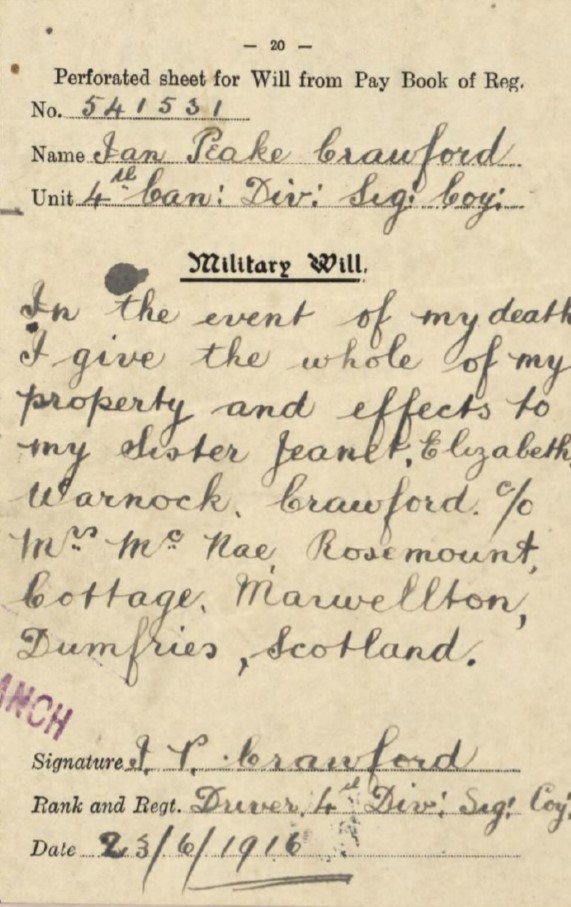 — 20 —
Perforated sheet for Will from Pay Book of Reg.
No. 541531
Name Ian Peake Crawford
Unit 4th Can: Div: Sig: Coy:
Military Will.
In the event of my death
I give the whole of my
property and effects to
my Sister Jeanet, Elizabeth,
Warnock, Crawford. c/o
Mrs Mc Nae, Rosemount,
Cottage, Maxwellton,
Dumfries, Scotland.
ANCH
Signature I. P. Crawford
Rank and Regt. Driver, 4th Div: Sig: Coy:
Date 23/6/1916